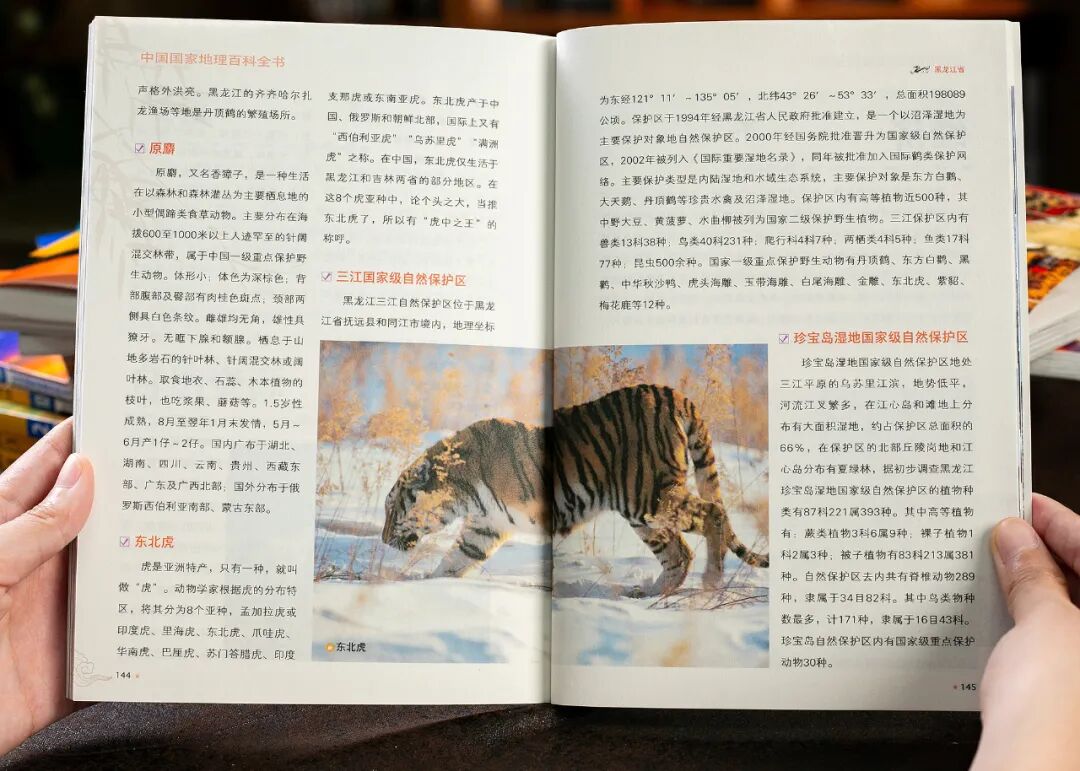 中国国家地理百科全书
声格外洪亮。黑龙江的齐齐哈尔扎
龙渔场等地是丹顶鹤的繁殖场所。
原麝
原麝，又名香獐子，是一种生活
在以森林和森林灌丛为主要栖息地的
小型偶蹄类食草动物。主要分布在海
拔600至1000米以上人迹罕至的针阔
混交林带，属于中国一级重点保护野
生动物。体形小；体色为深棕色；背
部腹部及臀部有肉桂色斑点；颈部两
侧具白色条纹。雌雄均无角，雄性具
獠牙。无眶下腺和额腺。栖息于山
地多岩石的针叶林、针阔混交林或阔
叶林。取食地衣、石蕊、木本植物的
枝叶，也吃浆果、蘑菇等。1.5岁性
成熟，8月至翌年1月末发情，5月～
6月产1仔～2仔。国内广布于湖北、
湖南、四川、云南、贵州、西藏东
部、广东及广西北部；国外分布于俄
罗斯西伯利亚南部、蒙古东部。
东北虎
虎是亚洲特产，只有一种，就叫
做“虎”。动物学家根据虎的分布特
区，将其分为8个亚种，孟加拉虎或
印度虎、里海虎、东北虎、爪哇虎、
华南虎、巴厘虎、苏门答腊虎、印度
144
支那虎或东南亚虎。东北虎产于中
国、俄罗斯和朝鲜北部，国际上又有
“西伯利亚虎”“乌苏里虎”“满洲
虎”之称。在中国，东北虎仅生活于
黑龙江和吉林两省的部分地区。在
这8个虎亚种中，论个头之大，当推
东北虎了，所以有“虎中之王”的
称呼。
三江国家级自然保护区
黑龙江三江自然保护区位于黑龙
江省抚远县和同江市境内，地理坐标
东北虎
黑龙江省
为东经121°11′～135°05′，北纬43°26′～53°33′，总面积198089
公顷。保护区于1994年经黑龙江省人民政府批准建立，是一个以沼泽湿地为
主要保护对象地自然保护区。2000年经国务院批准晋升为国家级自然保护
区，2002年被列入《国际重要湿地名录》，同年被批准加入国际鹤类保护网
络。主要保护类型是内陆湿地和水域生态系统，主要保护对象是东方白鹳、
大天鹅、丹顶鹤等珍贵水禽及沼泽湿地。保护区内有高等植物近500种，其
中野大豆、黄菠萝、水曲柳被列为国家二级保护野生植物。三江保护区内有
兽类13科38种；鸟类40科231种；爬行科4科7种；两栖类4科5种；鱼类17科
77种；昆虫500余种。国家一级重点保护野生动物有丹顶鹤、东方白鹳、黑
鹳、中华秋沙鸭、虎头海雕、玉带海雕、白尾海雕、金雕、东北虎、紫貂、
梅花鹿等12种。
珍宝岛湿地国家级自然保护区
珍宝岛湿地国家级自然保护区地处
三江平原的乌苏里江滨，地势低平，
河流江叉繁多，在江心岛和滩地上分
布有大面积湿地，约占保护区总面积的
66%，在保护区的北部丘陵岗地和江
心岛分布有夏绿林，据初步调查黑龙江
珍宝岛湿地国家级自然保护区的植物种
类有87科221属393种。其中高等植物
有：蕨类植物3科6属9种；裸子植物1
科2属3种；被子植物有83科213属381
种。自然保护区去内共有脊椎动物289
种，隶属于34目82科。其中鸟类物种
数最多，计171种，隶属于16目43科。
珍宝岛自然保护区内有国家级重点保护
动物30种。
145